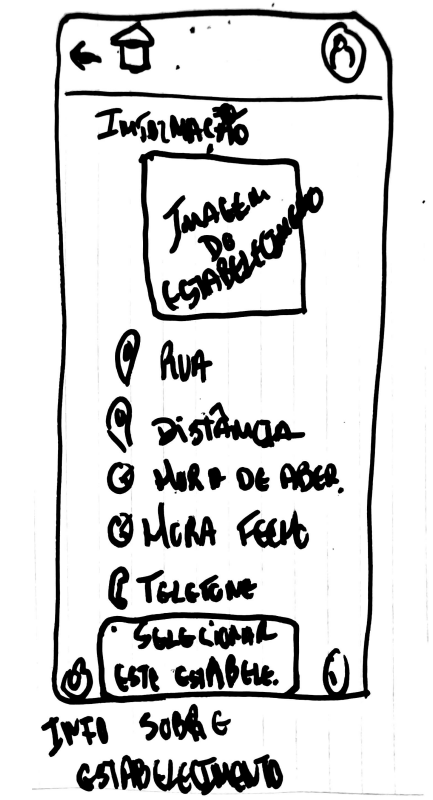 INFORMAÇÃO
IMAGEM
DO
ESTABELECIMENTO
RUA
DISTÂNCIA
HORA DE ABER.
HORA FECHO
TELEFONE
SELECIONAR
ESTE ESTABELE.
INFO SOBRE
ESTABELECIMENTO